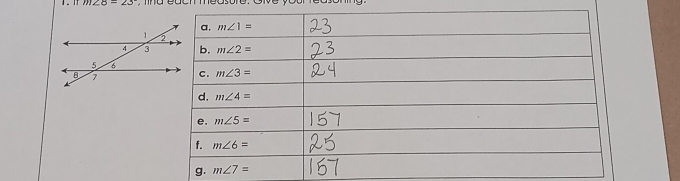 1. If m∠8 = 23°, find each measure. Give your reasoning.
1 2
4 3
5 6
8 7
a. m∠1 = 23
b. m∠2 = 23
c. m∠3 = 24
d. m∠4 =
e. m∠5 = 157
f. m∠6 = 25
g. m∠7 = 157